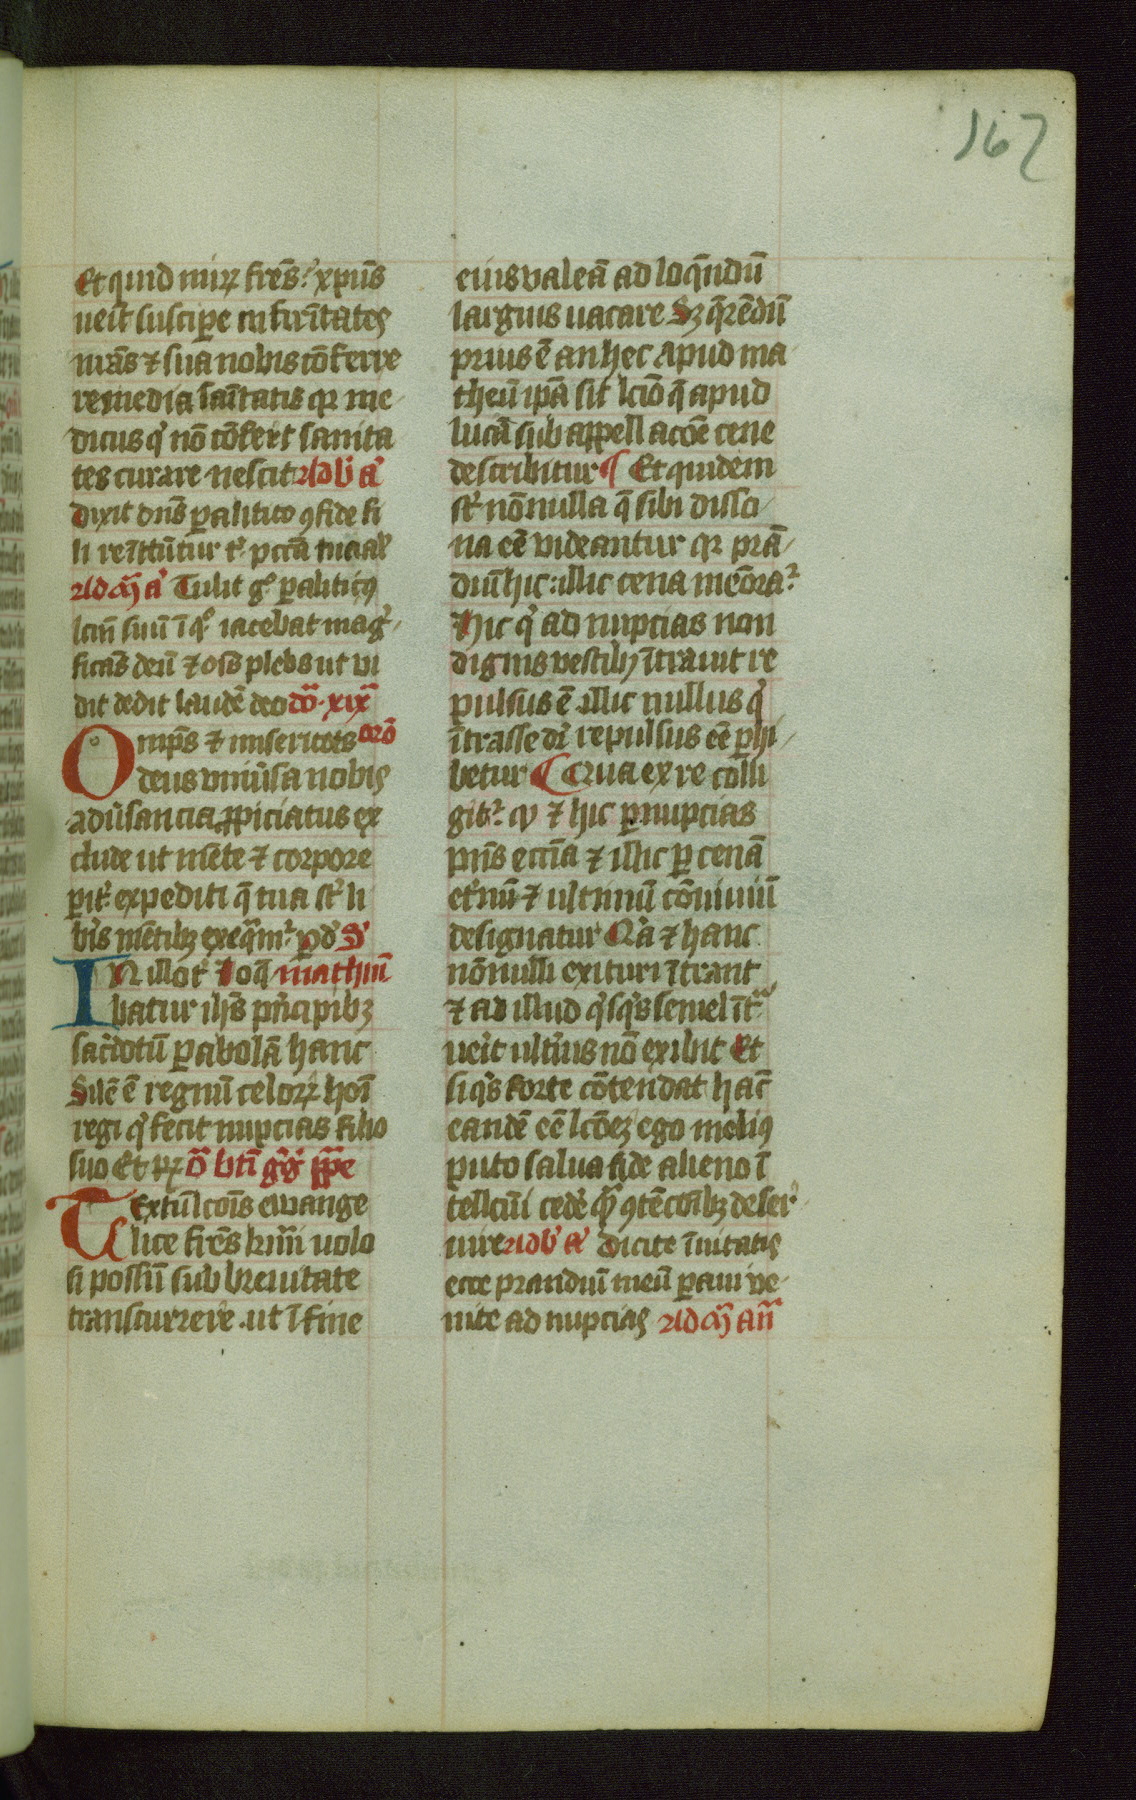 167
Et quid mirꝝ frēs? xpūs
ueīt suscipe infirītates
nrās ⁊ sua nobis cōferre
remedia sāītatis qꝛ me
dicus qͥ nō cōfert sanita
tes curare nescit Ad bͫ aͣ
Dixit dn̄s palitico ꝯfide fi
li remittūtur tͥ pctā tua al'
Ad mͣ aͣ Tulit gͦ paliticꝰ
lcm̄ suū ī qͦ iacebat mag
ficās deū ⁊ oīs plebs ut vi
dit dedit laudē deo dō xix
Omps ⁊ misericors orō
deus vniūsa nobis
adūsancia ꝓpiciatus ex
clude ut mēte ⁊ corpore
pit' expediti q̄ tua st' li
bis mētibꝫ exeqͣmᷣ p d' S'
IN illo t' loqͣ matheū
batur ihs pn̄cipibꝫ
sacdotū parabolā hanc
Silē ē regnū celoꝝ hoī
regi qͥ fecit nupcias filio
suo Et rꝫ ō bti gͣgͥ ppe
Textū lcōis ewange
lice frēs krm̄i uolo
si possū sub breuitate
transcurrere. ut ī fine
eius valeā ad loq̄ndū
largius uacare Sꝫ q̄rendū
prius ē an hec apud ma
theū ipā sit lcīo q̄ apud
lucā sub appellacōe cene
describitur ¶ Et quidem
st' nōnulla q̄ sibi disso
na eē videantur qꝛ prā
diū hic: illic cena memoraᷣ
Hic qͥ ad nupcias non
dignis vestibꝫ ītrauit re
pulsus ē illic nullus qͥ
ītrasse dr̄ repulsus eē phi
betur ¶ Qua ex re colli
gitᷣ qꝫ ⁊ hic p nupcias
pn̄s eccīa ⁊ illic p cenā
et'nū ⁊ ultimū cōuiuiū
designatur Qͥa ⁊ hanc
nōnulli exituri ītrant
⁊ ad illud qͥsqͥs semel īt
ueīt ulti͛us nō exibit Et
siqͥs forte cōtendat hāc
eandē eē lcōeꝫ ego meliꝰ
puto salua fide alieno ī
tellcūi cedē qͣ ꝯtēcōibꝫ deser
uire Ad bͫ aͣ Dicite īuitatis
ecce prandiū meū paui ve
nite ad nupcias Ad mͣ an̄